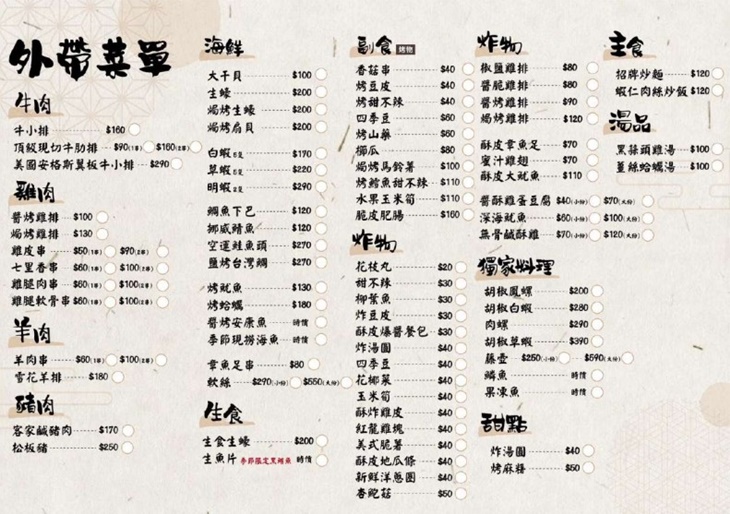 外帶菜單
牛肉
牛小排 $160
頂級現切牛肋排 $90(1串) $160(2串)
美國安格斯翼板牛小排 $290
雞肉
醬烤雞排 $100
焗烤雞排 $130
雞皮串 $50(1串) $90(2串)
七里香串 $60(1串) $100(2串)
雞腿肉串 $60(1串) $100(2串)
雞腿軟骨串 $60(1串) $100(2串)
羊肉
羊肉串 $60(1串) $100(2串)
雪花羊排 $180
豬肉
客家鹹豬肉 $170
松板豬 $250
海鮮
大干貝 $100
生蠔 $200
焗烤生蠔 $200
焗烤扇貝 $200
白蝦 5隻 $170
草蝦 5隻 $220
明蝦 2隻 $290
鯛魚下巴 $120
挪威鯖魚 $120
空運鮭魚頭 $270
鹽烤台灣鯛 $270
烤魷魚 $130
烤蛤蠣 $180
醬烤安康魚 時價
季節現撈海魚 時價
章魚足串 $80
軟絲 $290(小份) $550(大份)
生食
生食生蠔 $200
生魚片 季節限定黑鮪魚 時價
副食 烤物
香菇串 $40
烤豆皮 $40
烤甜不辣 $40
四季豆 $60
烤山藥 $60
櫛瓜 $80
焗烤馬鈴薯 $100
烤鱈魚甜不辣 $110
水果玉米筍 $110
脆皮肥腸 $160
炸物
花枝丸 $20
甜不辣 $30
柳葉魚 $30
炸豆皮 $30
酥皮爆醬餐包 $30
炸湯圓 $40
四季豆 $40
花椰菜 $40
玉米筍 $40
酥炸雞皮 $40
紅龍雞塊 $40
美式脆薯 $40
酥皮地瓜條 $40
新鮮洋蔥圈 $40
杏鮑菇 $50
炸物
椒鹽雞排 $80
醬脆雞排 $80
醬烤雞排 $90
焗烤雞排 $120
酥皮章魚足 $70
蜜汁雞翅 $70
酥皮大魷魚 $110
醬酥雞蛋豆腐 $40(小份) $70(大份)
深海魷魚 $60(小份) $100(大份)
無骨鹹酥雞 $70(小份) $120(大份)
獨家料理
胡椒鳳螺 $200
胡椒白蝦 $280
肉螺 $290
胡椒草蝦 $390
藤壺 $250(小份) $590(大份)
鱗魚 時價
果凍魚 時價
甜點
炸湯圓 $40
烤麻糬 $50
主食
招牌炒麵 $120
蝦仁肉絲炒飯 $120
湯品
黑蒜頭雞湯 $100
薑絲蛤蠣湯 $100